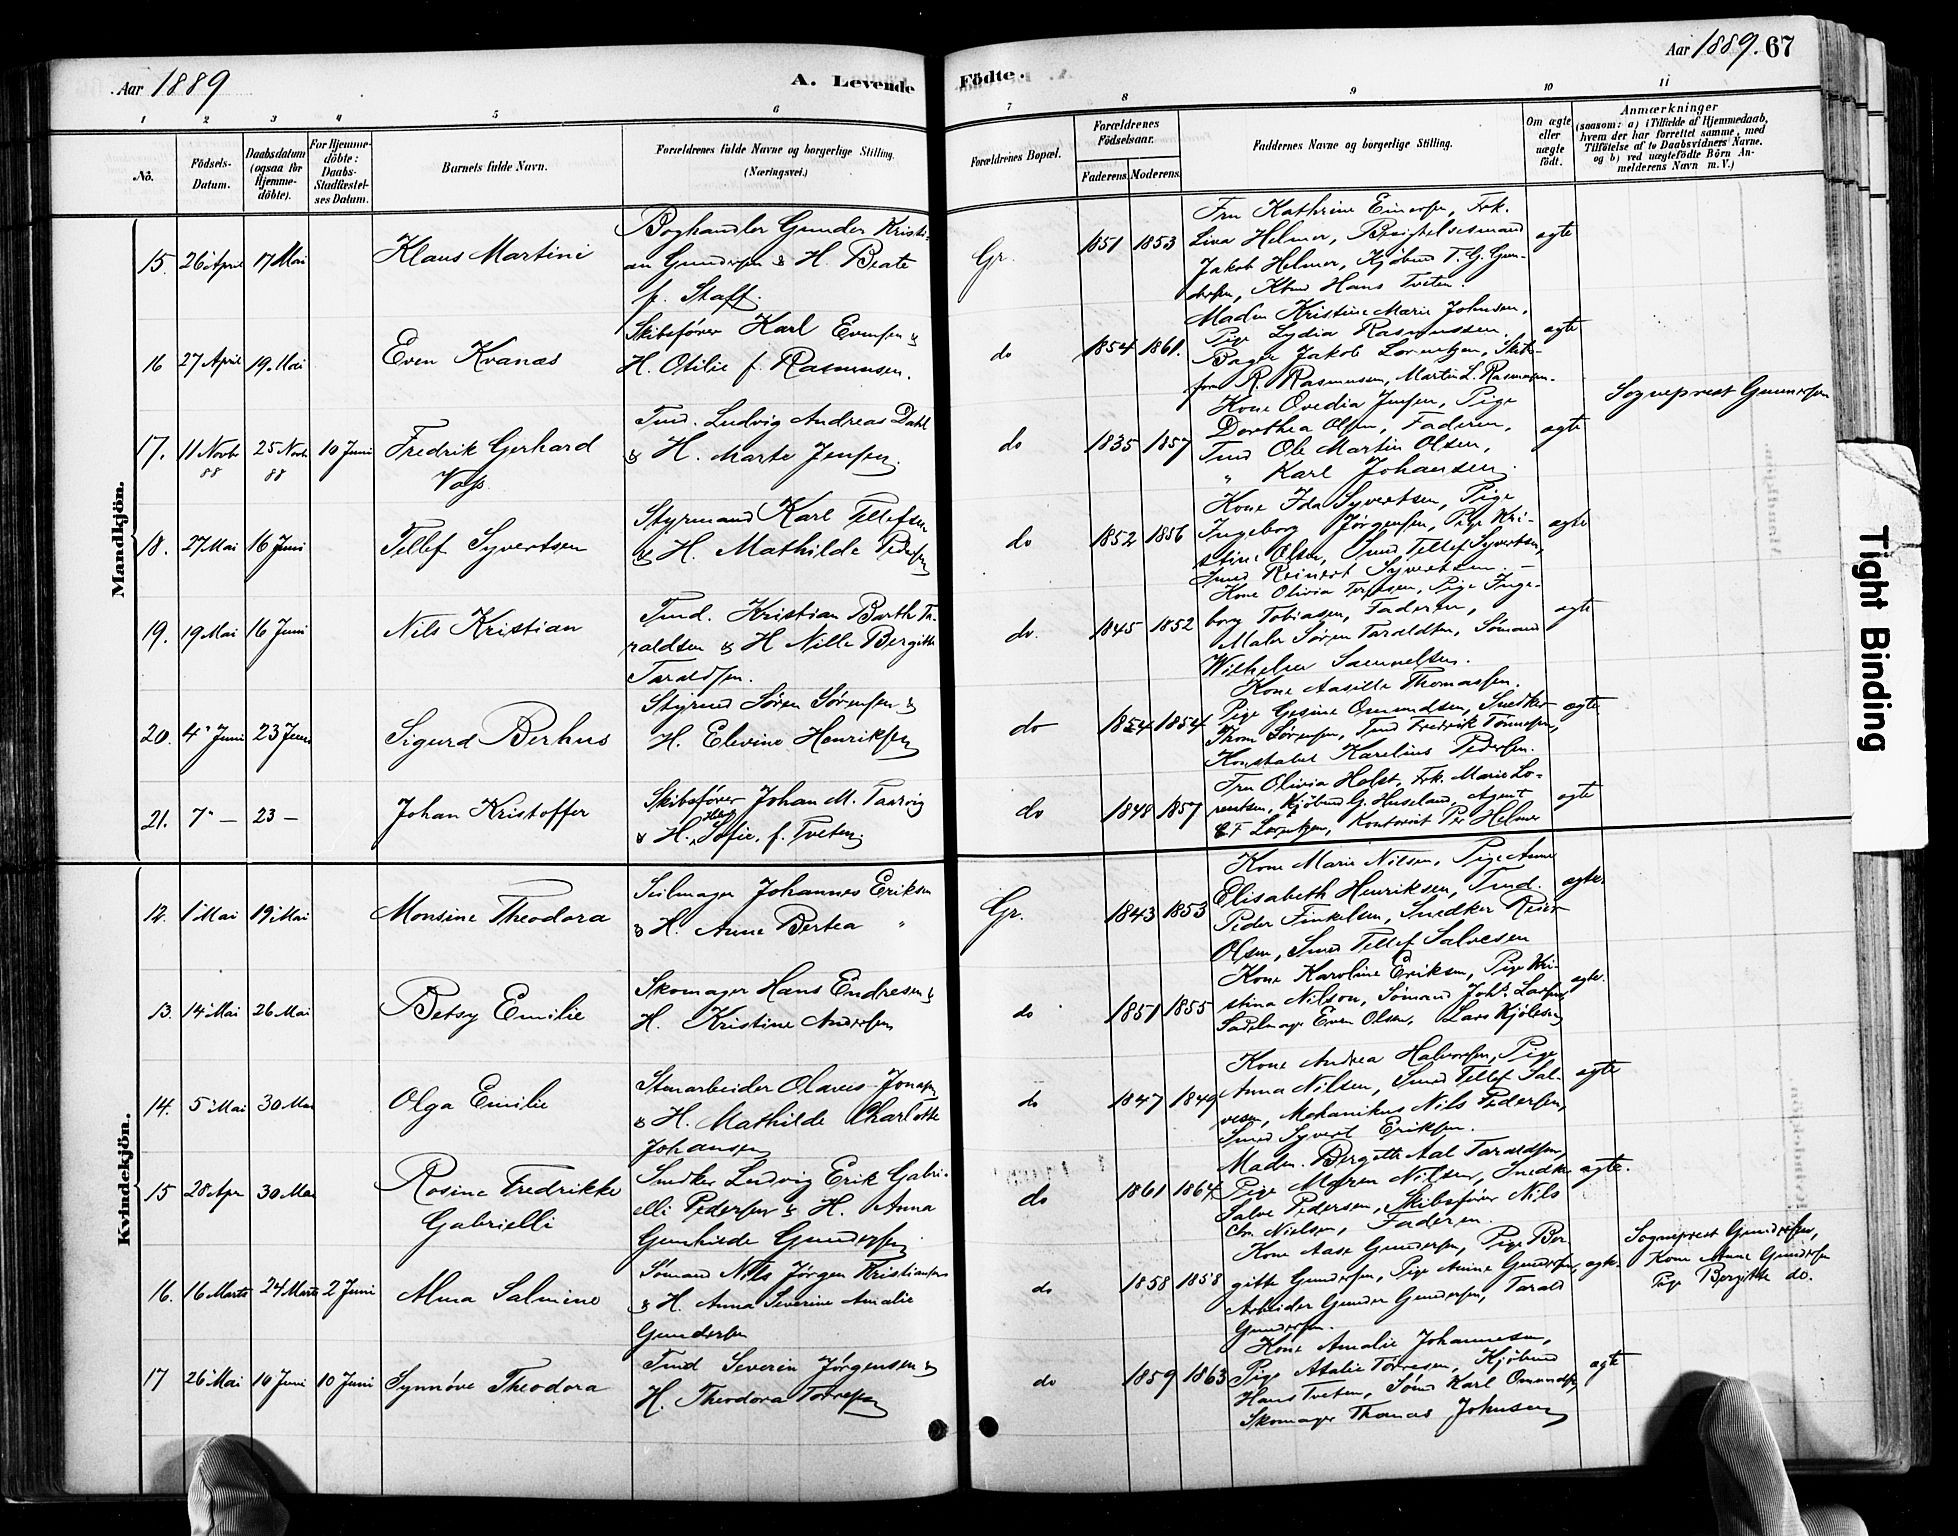 Aar 1889
A. Levende
Födte.
Aar 1889. 67
1 2 3 4 5 6 7 8 9 10 11
No.
Födsels-Datum.
Daabsdatum (ogsaa for Hjemmedöbte).
For Hjemmedöbte: Daabs-Stadfæstelses Datum.
Barnets fulde Navn.
Forældrenes fulde Navne og borgerlige Stilling. (Næringsvei.)
Forældrenes Bopæl.
Forældrenes Födselsaar.
Faderens. Moderens.
Faddernes Navne og borgerlige Stilling.
Om ægte eller uægte født.
Anmærkninger (saasom: a) i Tilfælde af Hjemmedaab, hvem der har forrettet samme, med Tilföielse af to Daabsvidners Navne, og b) ved uægtefödte Börn Anmelderens Navn m. V.)
Mandkjön.
15. 26 April 17 Mai
Klaus Martini
Boghandler Gunder Kristi-
an Gundersen & H. Beate
f. Staff.
Gr. 1851 1853
Fru Kathrine Einersen, Frk.
Lina Helmer,
Jakob Helmer, Kjøbmd T. G. Gun-
dersen, Kbmd Hans Tveten.
ægte
16 27 April 19 Mai
Even Kvanæs
Skibsfører Karl Evensen &
H. Otilie f. Rasmussen.
do 1854 1861.
Madm Kristine Marie Johnsen,
Pige Lydia Rasmussen.
Bager Jakob Lorentzen, Skibs-
føre R. Rasmussen, Martin L. Rasmussen.
ægte
17. 11 Novbr 88 25 Novbr 88 10 Juni
Fredrik Gerhard
Vass
Tmd. Ludvig Andreas Dahl
& H. Marte Jensen.
do 1835 1857
Kone Ovedia Jensen, Pige
Dorthea Olsen, Faderen,
Tmd Ole Martin Olsen,
" Karl Johansen.
ægte
Sogneprest Gundersen
18. 27 Mai 16 Juni
Tellef Syvertsen
Styrmand Karl Tellefsen
& H. Mathilde Pedersen
do 1852 1856
Kone Ida Syvertsen, Pige
Ingeborg Jørgensen, Pige Kri-
stine Olsen, Smed Tellef Syvertsen,
Smed Reinert Syvertsen.
ægte
19. 19 Mai 16 Juni
Nils Kristian
Tmd. Kristian Barth Ta-
raldsen & H Nille Bergitte
Taraldsen.
do. 1845 1852
Kone Olivia Terjesen, Pige Inge-
borg Tobiasen, Faderen,
Maler Søren Taraldsen, Sømand
Wilhelm Samuelsen.
ægte
20. 4 Juni 23 Juni
Sigurd Berhus
Styrmd Søren Sørensen &
H. Elevine Henriksen
do 1854 1854
Kone Aasille Thomassen.
Pige Gesine Omundsen, Snedker
Thom Sørensen, Tmd Fredrik Tønnesen,
Konstabel Karelius Pedersen.
ægte
21. 7 — 23 —
Johan Kristoffer
Skibsfører Johan M. Taarvig
& H. Sofie, f. Tveten.
do 1848 1857
Fru Olivia Holst, Frk. Marie Lo-
rentsen, Kjøbmd G. Huseland, Agent
C. F Lorentzen, Kontorist Per Helmer
ægte
Kvindekjön.
12. 1 Mai 19 Mai
Monsine Theodora
Seilmager Johannes Eriksen
& H. Anne Bertea "
Gr. 1843 1853
Kone Marie Nilsen, Pige Anne
Elisabeth Henriksen, Tmd.
Peder Finkelsen, Snedker Reier
Olsen, Smed Tellef Salvesen
ægte.
13. 14 Mai 26 Mai
Betsy Emilie
Skomager Hans Endresen &
H. Kristine Andersen
do 1851 1855
Kone Karoline Eriksen, Pige Kri-
stina Nilson, Sømand Johs. Larsen,
Sadelmager Even Olsen, Lars Kjølesen
ægte.
14. 5 Mai 30 Mai
Olga Emilie
Stenarbeider Olaves Jonasen
& H. Mathilde Charlotte
Johansen
do 1847 1849
Kone Andrea Halvorsen, Pige
Anna Nilsen, Smed Tellef Sal-
vesen, Mekanikus Nils Pedersen,
Smed Syvert Eriksen.
ægte
15 28 Apr 30 Mai
Rosine Fredrikke
Gabrielli
Snedker Ludvig Erik Gabri-
elli Pedersen & H. Anna
Gunhilde Gundersen
do 1861 1864
Madm. Bergitte Aal Taraldsen,
Pige Maren Nilsen, Snedker
Salve Pedersen, Skibsfører Nils
Chr. Nielsen, Faderen.
ægte.
16. 16 Marts 24 Marts 2 Juni
Alma Salmine
Sømand Nils Jörgen Kristiansen
& H. Anna Severine Amalie
Gundersen
do 1858 1858
Kone Aase Gundersen, Pige Ber-
gitte Gundersen, Pige Anne Gundersen,
Arbeider Gunder Gundersen, Tarald
Gundersen.
ægte.
Sogneprest Gundersen,
Kone Anne Gundersen
Pige Bergitte do.
17 26 Mai 10 Juni 10 Juni
Synnöve Theodora
Tmd Severin Jörgensen &
H. Theodora Torresen
do 1859 1863
Kone Amalie Johannesen,
Pige Atalie Torresen, Kjöbmd
Hans Tveten, Sømd Karl Omundsen
Skomager Thomas Johnsen
ægte
Tight Binding